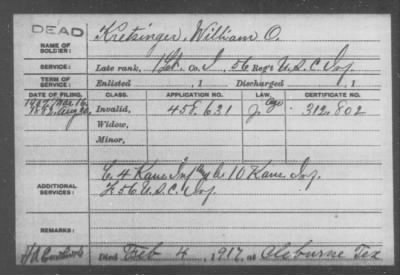 DEAD
NAME OF SOLDIER: Kretsinger, William O.
SERVICE: Late rank, 1 Lt. Co. I, 56 Reg't U.S.C. Inf.
TERM OF SERVICE: Enlisted , 1 Discharged , 1
DATE OF FILING. CLASS. APPLICATION NO. LAW. CERTIFICATE NO.
1907 Mar 16 Age
1882, Aug 26, Invalid, 458.631 J. 312.802
Widow,
Minor,
ADDITIONAL SERVICES: C. 4 Kans Inf 10 Kans Inf.
F 56 U.S.C. Inf.
REMARKS:
Died Feb 4, 1917, at Cleburne Tex